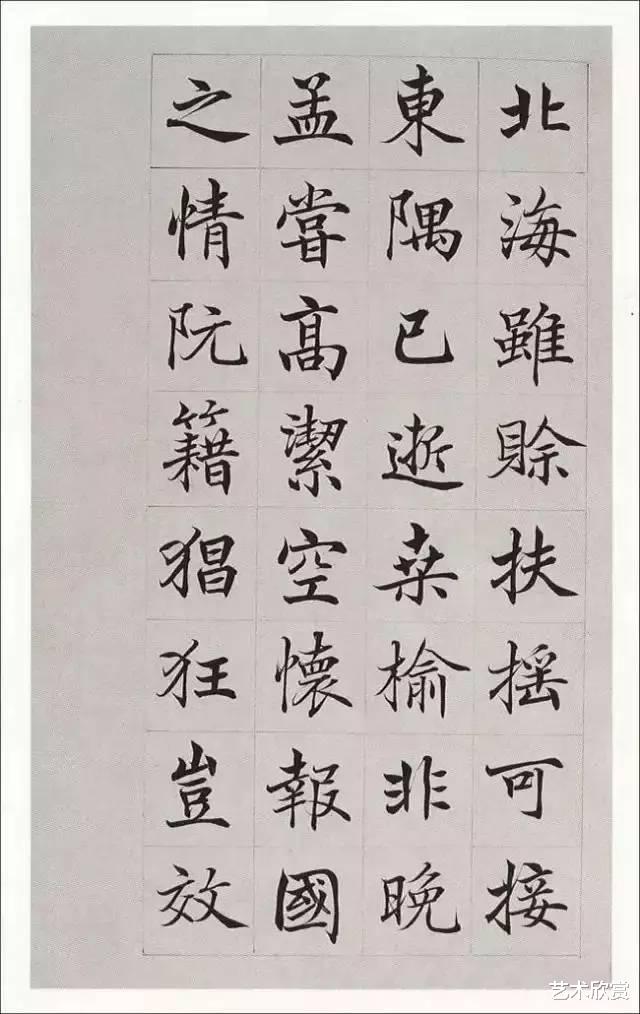 北海雖賒扶摇可接
東隅已逝桒榆非晚
孟嘗高潔空懷報國
之情阮籍猖狂豈效
艺术欣赏